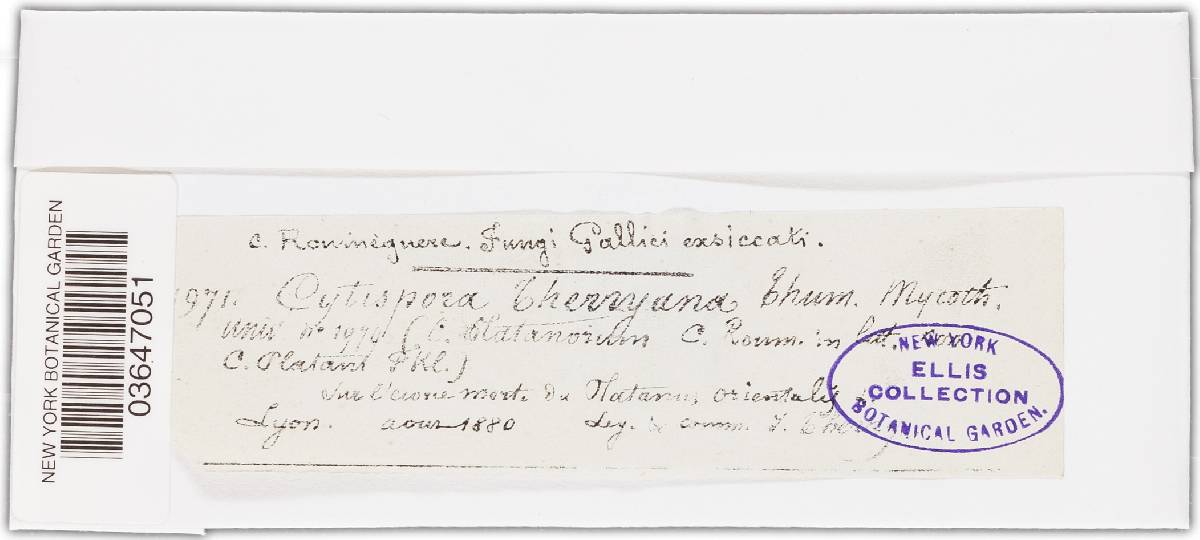 NEW YORK BOTANICAL GARDEN
03647051
C. Roumeguere. Fungi Gallici exsiccati.
971. Cytispora Therryana Thum. Mycoth.
univ. n° 1979 (C. Platanorum C. Roum. in litt. non
C. Platani Fkl.)
Sur l'écorce morte du Platanus orientalis
Lyon. aout 1880 Leg. & comm. J. Therry
NEW YORK
ELLIS
COLLECTION
BOTANICAL GARDEN.